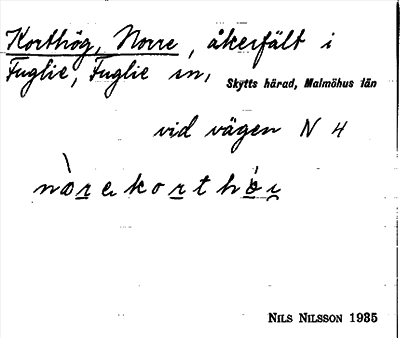 Korthög, Norre, åkerfält i
Fuglie, Fuglie sn,
Skytts härad, Malmöhus län
vid vägen N 4
nòrekorthöi
NILS NILSSON 1935